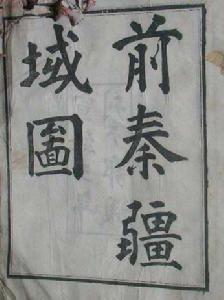 前秦疆
域圖